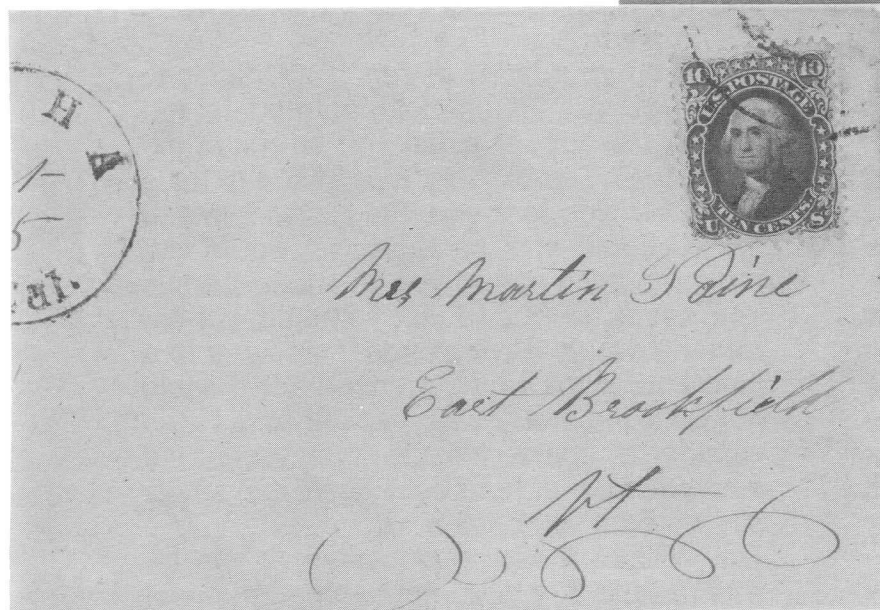 10 10
U.S. POSTAGE
TEN CENTS.
U S
H A
Mrs Martin Paine
East Brookfield
Vt